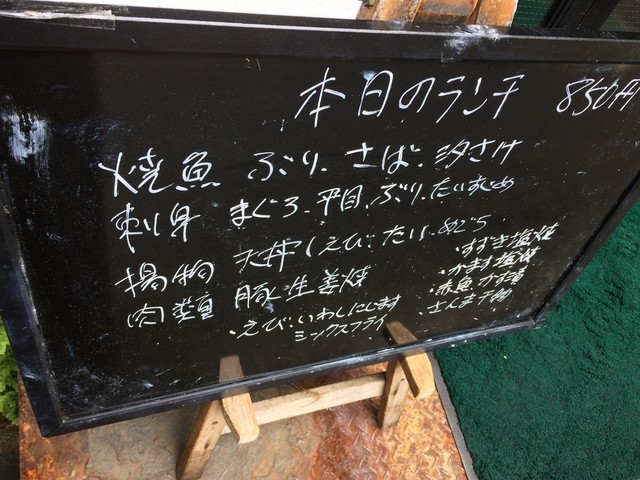 本日のランチ 850円
焼魚 ぶり、さば、汐さけ
刺身 まぐろ、平目、ぶり、たいすじめ
揚物 天丼(えび、たい、めごち
肉類 豚生姜焼
・すずき塩焼
・かます塩焼
・赤魚かす漬
・さんま干物
・えび・いわしにします
ミックスフライ